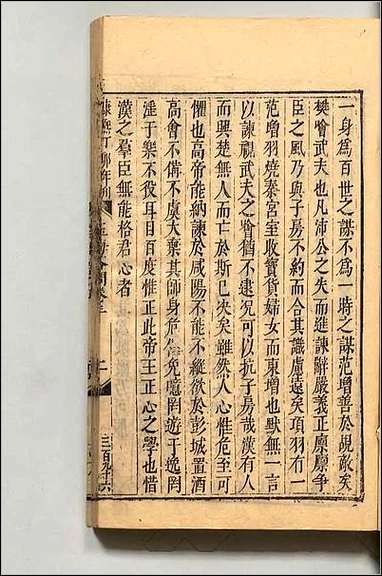 一身爲百世之謀不爲一時之謀范增善於覘敵矣
樊噲武夫也凡沛公之失而進諫辭嚴義正廪廪爭
臣之風乃與子房不約而合其識慮遠矣項羽有一
范增羽燒秦宮室收寶貨婦女而東增也默無一言
以諫視武夫之噲猶不逮死可以抗子房哉漢有人
而興楚無人而亡於斯已决矣雖然人心惟危至可
懼也高帝能納諫於咸陽不能不縱欲於彭城置酒
高會不備不虞大棄其師身危僅免噫罔遊于逸罔
淫于樂不役耳目百度惟正此帝王正心之學也惜
漢之羣臣無能格君心者
康熙丁卯年刊
二
三百九十六